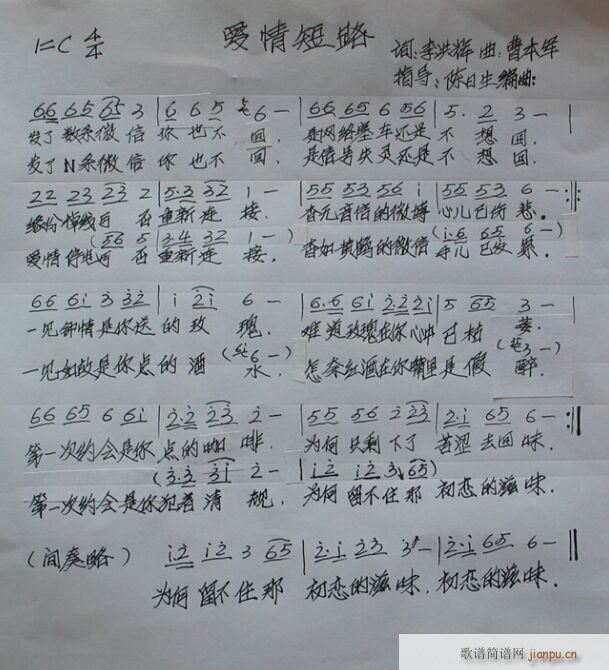 1=C 4/4 爱情短路 词:李洪辉 曲:曹本军
指导:陈日生 编曲:
66 65 65 3 | 6 6 5 6 — | 66 65 6 56 | 5. 2 3 — |
发了数条微信 你也不 回. 是网络塞车还是 不 想 回.
发了N条微信 你也不 回. 是信号失灵还是 不 想 回.
22 23 23 2 | 5·3 32 1 — | 55 53 56 i | 55 53 6 — :||
缘份掉线后 再重新连 接. 杳无音信的微博 心儿已伤 悲.
(56 5 | 3·4 32 1 —) (i·6 65 6 —)
爱情停电后 再重新连 接. 杳如黄鹤的微信
66 6i 3 32 | i 2i 6 — | 6·6 6i 2·22i | 5 65 3 — |
一见钟情是你送 的 玫 瑰. 难道玫瑰在你心中 已 枯 萎.
一见如故是你点 的 酒 水. 怎奈红酒在你嘴里 是 假 醉.
66 65 6 6i | 2·2 23 2 — | 55 56 2 23 | 2·i 65 6 — :||
第一次约会是你 点的咖 啡. 为何 只剩 下了 苦涩 去回 味.
(3·3 3i 2 — | i2 i2 3 65)
第一次约会是你 犯着清 靓. 为何 留不住那 初恋的滋味.
(间奏略) i2 i2 3 65 | 2·i 23 3 — | 2·i 65 6 — ||
为何 留不住那 初恋的滋味. 初恋的滋味.
歌谱简谱网
jianpu.cn